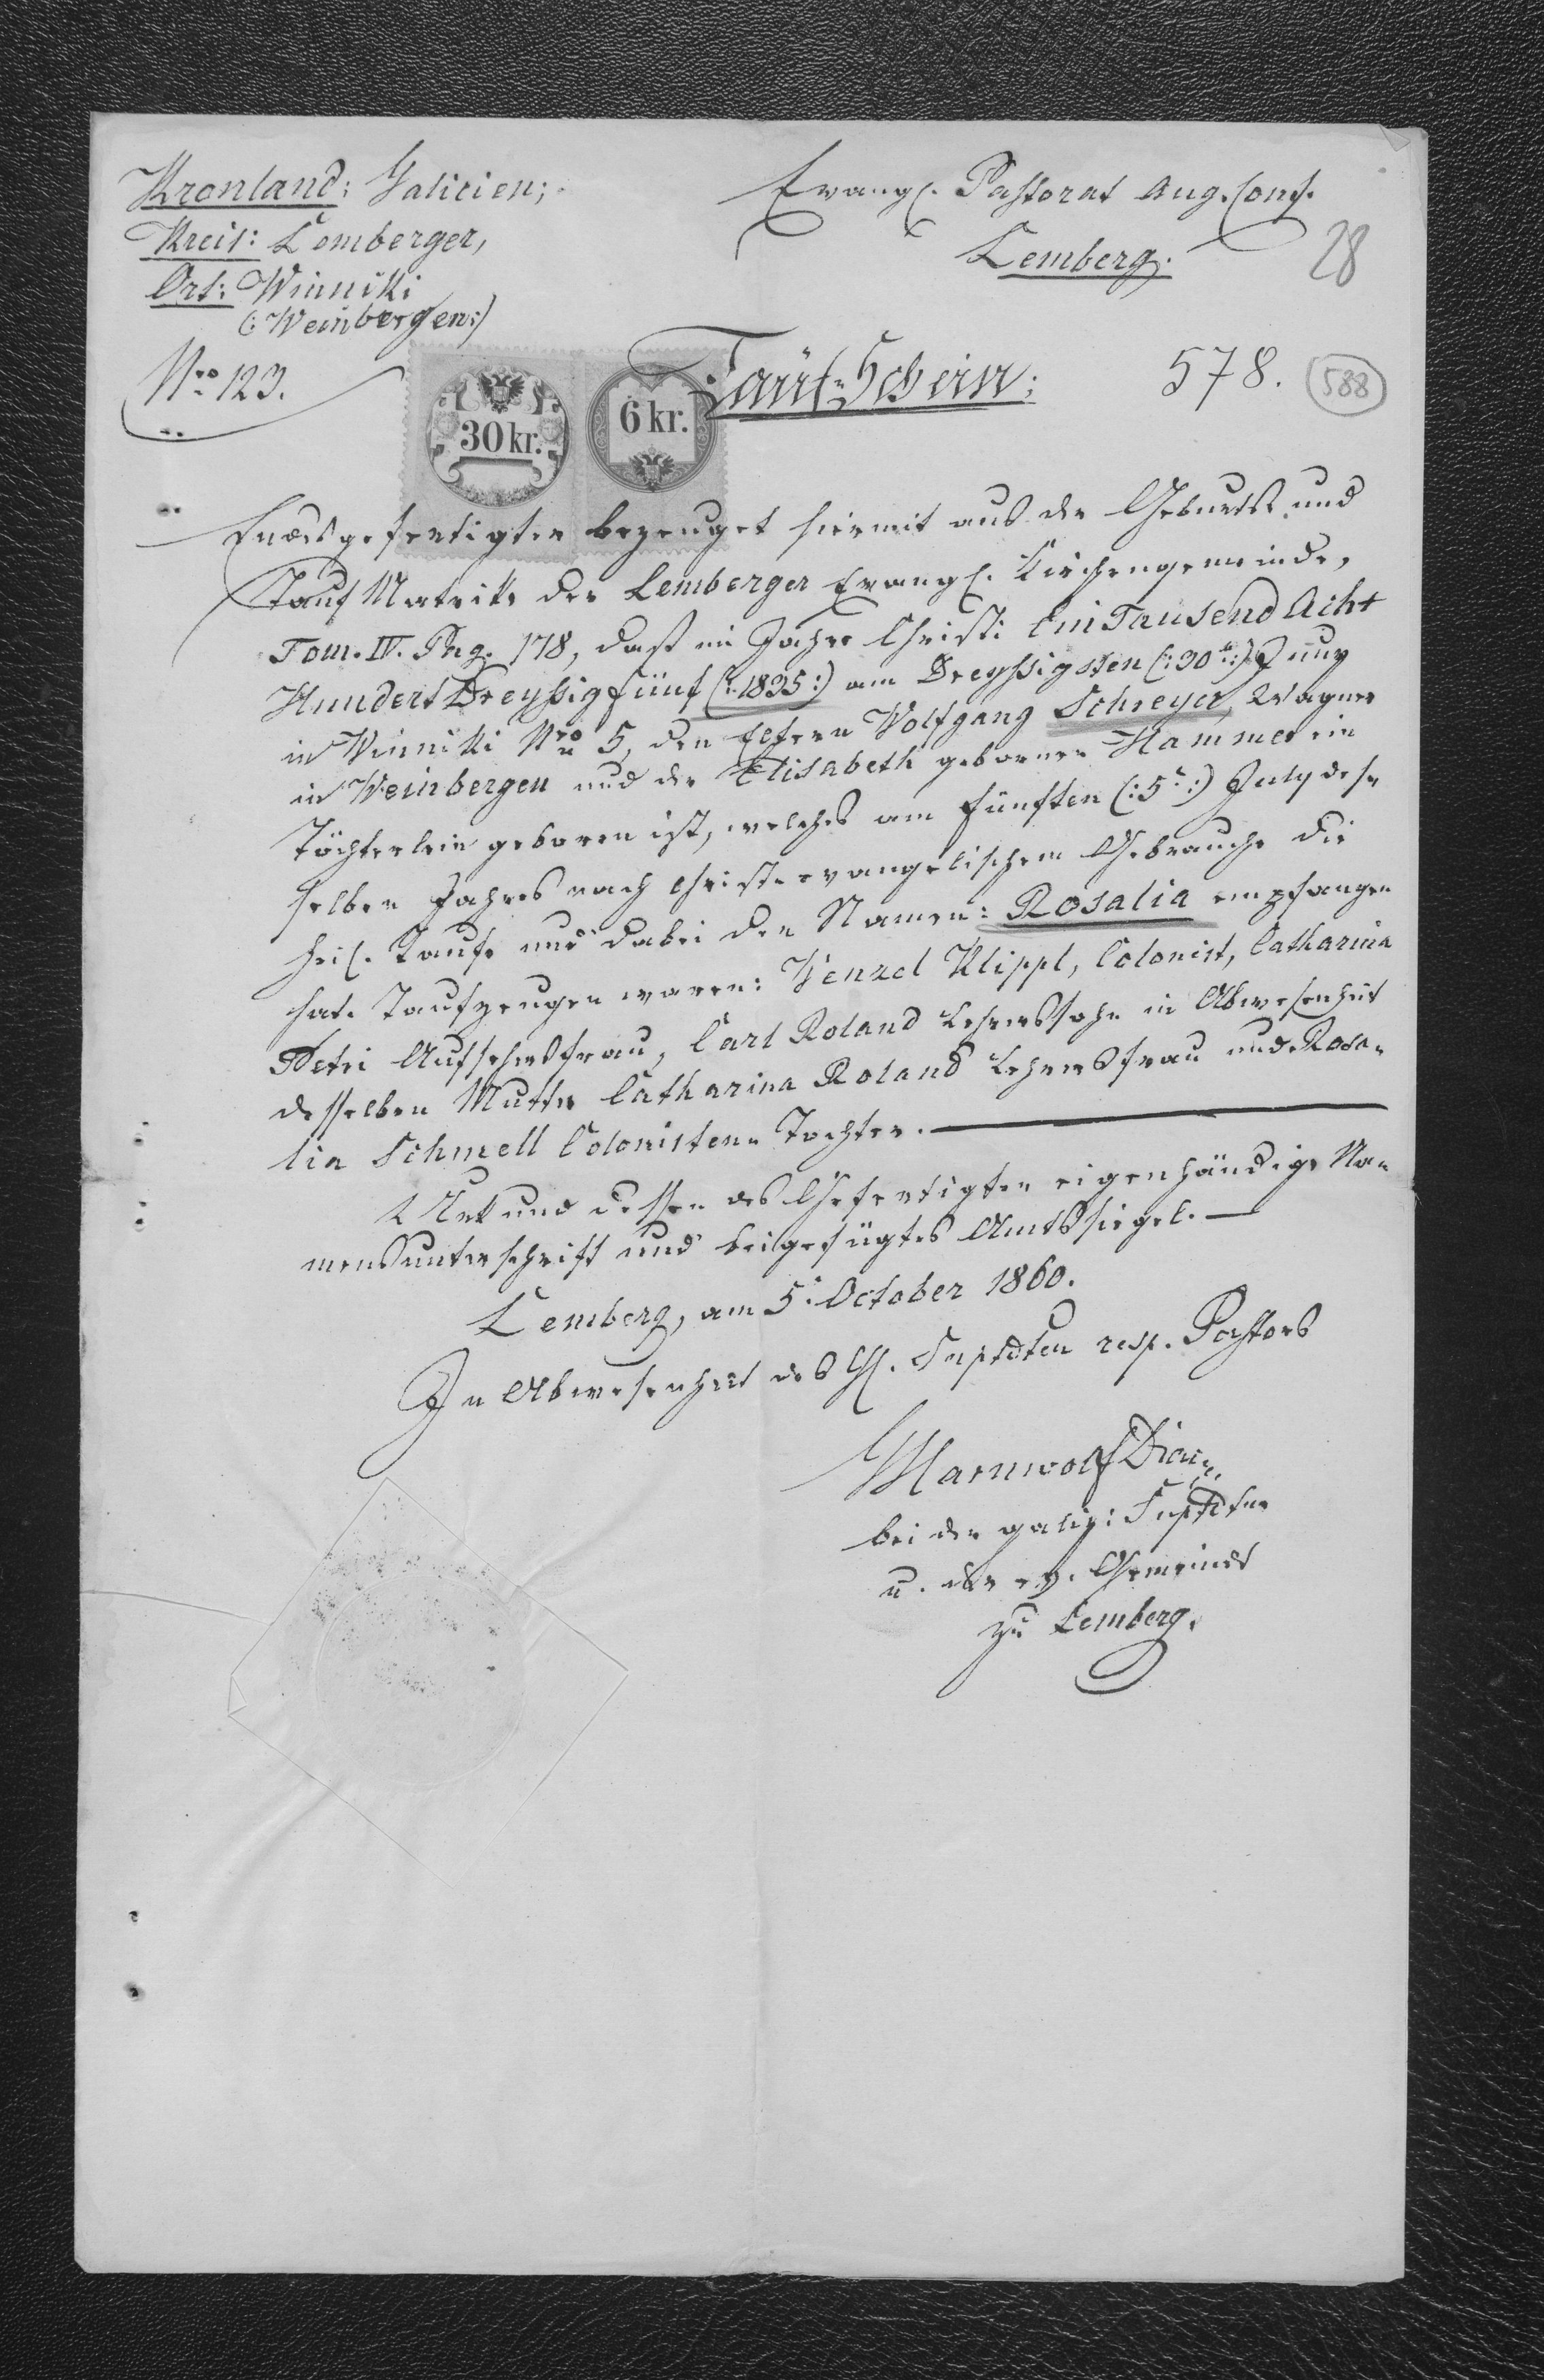 Kronland: Galicien;
Kreis: Lemberger,
Ort: Winniki
(: Weinbergen :)
Nro 123.
Evangl. Pastorat Aug. Conf.
Lemberg.
28
Tauf-Schein:
578.
588
30 kr.
6 kr.
Endesgefertigter bezeuget hiermit aus der Geburts- und
Tauf Matrik der Lemberger Evangl. Kirchengemeinde,
Tom. IV. Pag. 178, daß im Jahre Christi Ein Tausend Acht
Hundert Dreyßig fünf (: 1835 :) am Dreyßigsten (: 30t :) Juny
in Winniki Nro 5, den Eltern Wolfgang Schreyer, Wagner
in Weinbergen und der Elisabeth geborner Hammer ein
Töchterlein geboren ist, welches am fünften (: 5t :) July des-
selben Jahres nach christ-evangelischem Gebrauche die
heil. Taufe und dabei den Namen: Rosalia empfangen
hat. Taufzeugen waren: Wenzel Klippl, Colonist, Catharina
Petri Aufsehersfrau, Carl Roland Lehrerssohn in Abwesenheit
desselben Mutter Catharina Roland Lehrersfrau und Rosa-
lia Schmell Colonisten-Tochter.
Urkund dessen des Gefertigten eigenhändige Na-
mensunterschrift und beigefügtes Amtssiegel.
Lemberg, am 5t October 1860.
In Abwesenheit des H. Suptdten resp. Pastors
bei der galiz: Suptdtur
u. der ev. Gemeinde
zu Lemberg.